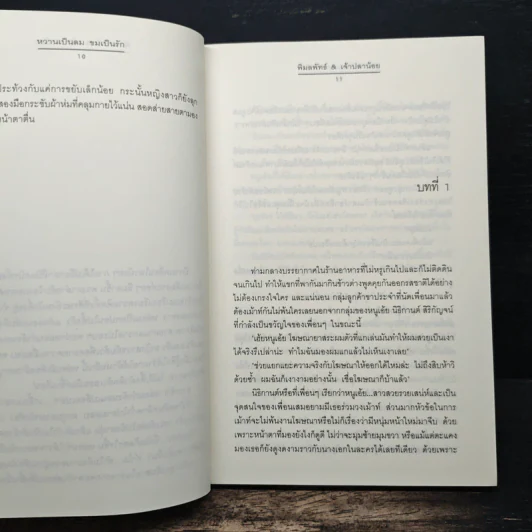 หวานเป็นลม ขมเป็นรัก
10
ประท้วงกับแค่การขยับเล็กน้อย กระนั้นหญิงสาวก็ยังลุก
สองมือกระชับผ้าห่มที่คลุมกายไว้แน่น สอดส่ายสายตามอง
หน้าตาตื่น
พิมลพัทธ์ & เจ้าปลาน้อย
11
บทที่ 1
ท่ามกลางบรรยากาศในร้านอาหารที่ไม่หรูเกินไปและก็ไม่ติดดิน
จนเกินไป ทำให้แขกที่พากันมากินข้าวต่างพูดคุยกันออกรสชาติได้อย่าง
ไม่ต้องเกรงใจใคร และแน่นอน กลุ่มลูกค้าขาประจำที่นัดเพื่อนมาแล้ว
ต้องเม้าท์กันไม่พ้นใครเลยนอกจากกลุ่มของหนูเอ้ย นิธิกานต์ สิริกัญจน์
ที่กำลังเป็นขวัญใจของเพื่อนๆ ในขณะนี้
"เอ้ยหนูเอ้ย โฆษณายาสระผมตัวที่แกเล่นมันทำให้ผมสวยเป็นเงา
ได้จริงรึเปล่าน่ะ ทำไมฉันมองผมแกแล้วไม่เห็นเงาเลย"
"ช่วยแยกแยะความจริงกับโฆษณาให้ออกได้ไหมล่ะ ไม่ถึงสิบห้าวิ
ด้วยซ้ำ ผมฉันก็เงางามอย่างนั้น เชื่อโฆษณาก็บ้าแล้ว"
นิธิกานต์หรือที่เพื่อนๆ เรียกว่าหนูเอ้ย...สาวสวยรวยเสน่ห์และเป็น
จุดสนใจของเพื่อนเสมอยามมีเธอร่วมวงเม้าท์ ส่วนมากหัวข้อในการ
เม้าท์จะไม่พ้นงานโฆษณาหรือไม่ก็เรื่องว่ามีหนุ่มหน้าใหม่มาจีบ ด้วย
เพราะหน้าตาที่มองยังไงก็ดูดี ไม่ว่าจะมุมซ้ายมุมขวา หรือแม้แต่ตะแคง
มองเธอก็ยังดูงดงามราวกับนางเอกในละครได้เลยทีเดียว ด้วยเพราะ